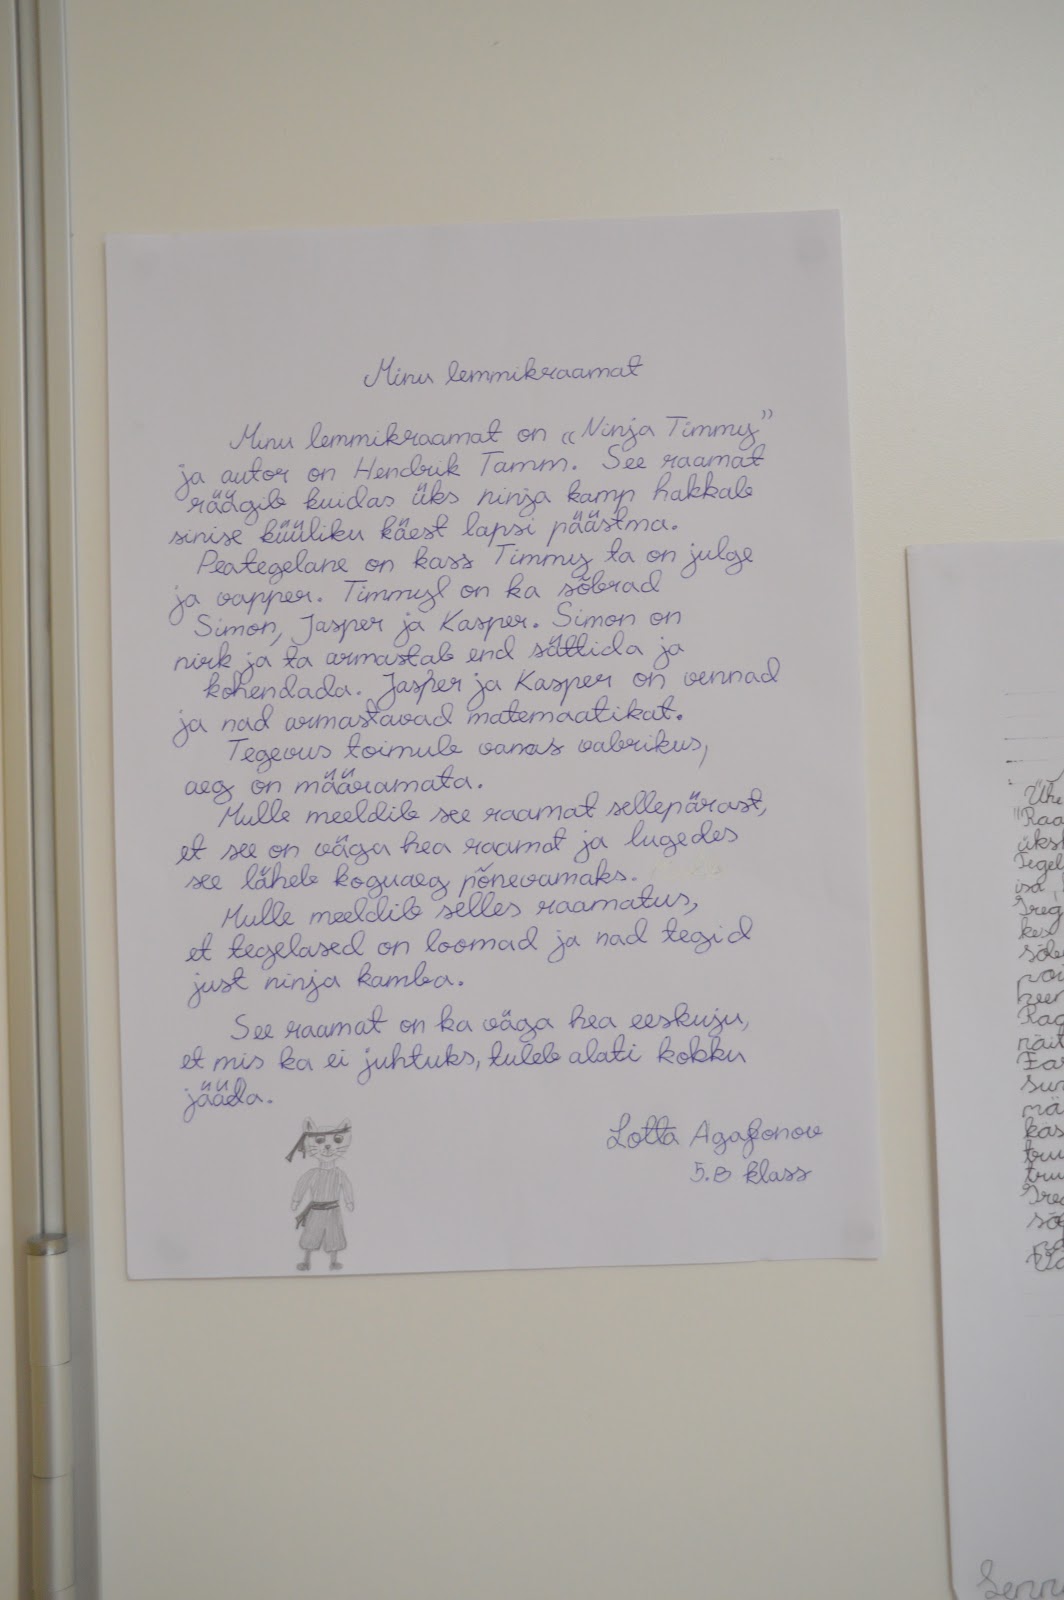 Minu lemmikraamat
Minu lemmikraamat on „Ninja Timmy”
ja autor on Hendrik Tamm. See raamat
räägib kuidas üks ninja kamp hakkab
sinise küüliku käest lapsi päästma.
Peategelane on kass Timmy ta on julge
ja vapper. Timmyl on ka sõbrad
Simon, Jasper ja Kasper. Simon on
nirk ja ta armastab end sättida ja
kohendada. Jasper ja Kasper on vennad
ja nad armastavad matemaatikat.
Tegevus toimub vanas vabrikus,
aeg on määramata.
Mulle meeldib see raamat sellepärast,
et see on väga hea raamat ja lugedes
see läheb koguaeg põnevamaks.
Mulle meeldib selles raamatus,
et tegelased on loomad ja nad tegid
just ninja kamba.
See raamat on ka väga hea eeskuju,
et mis ka ei juhtuks, tuleb alati kokku
jääda.
Lotta Agafonov
5.B klass
Ühe
"Raa
üksi
Tegel
isa,
Greg
kes
sõb
poi
Rag
näit
sur
mä
kas
tru
tru
Greg
sõ